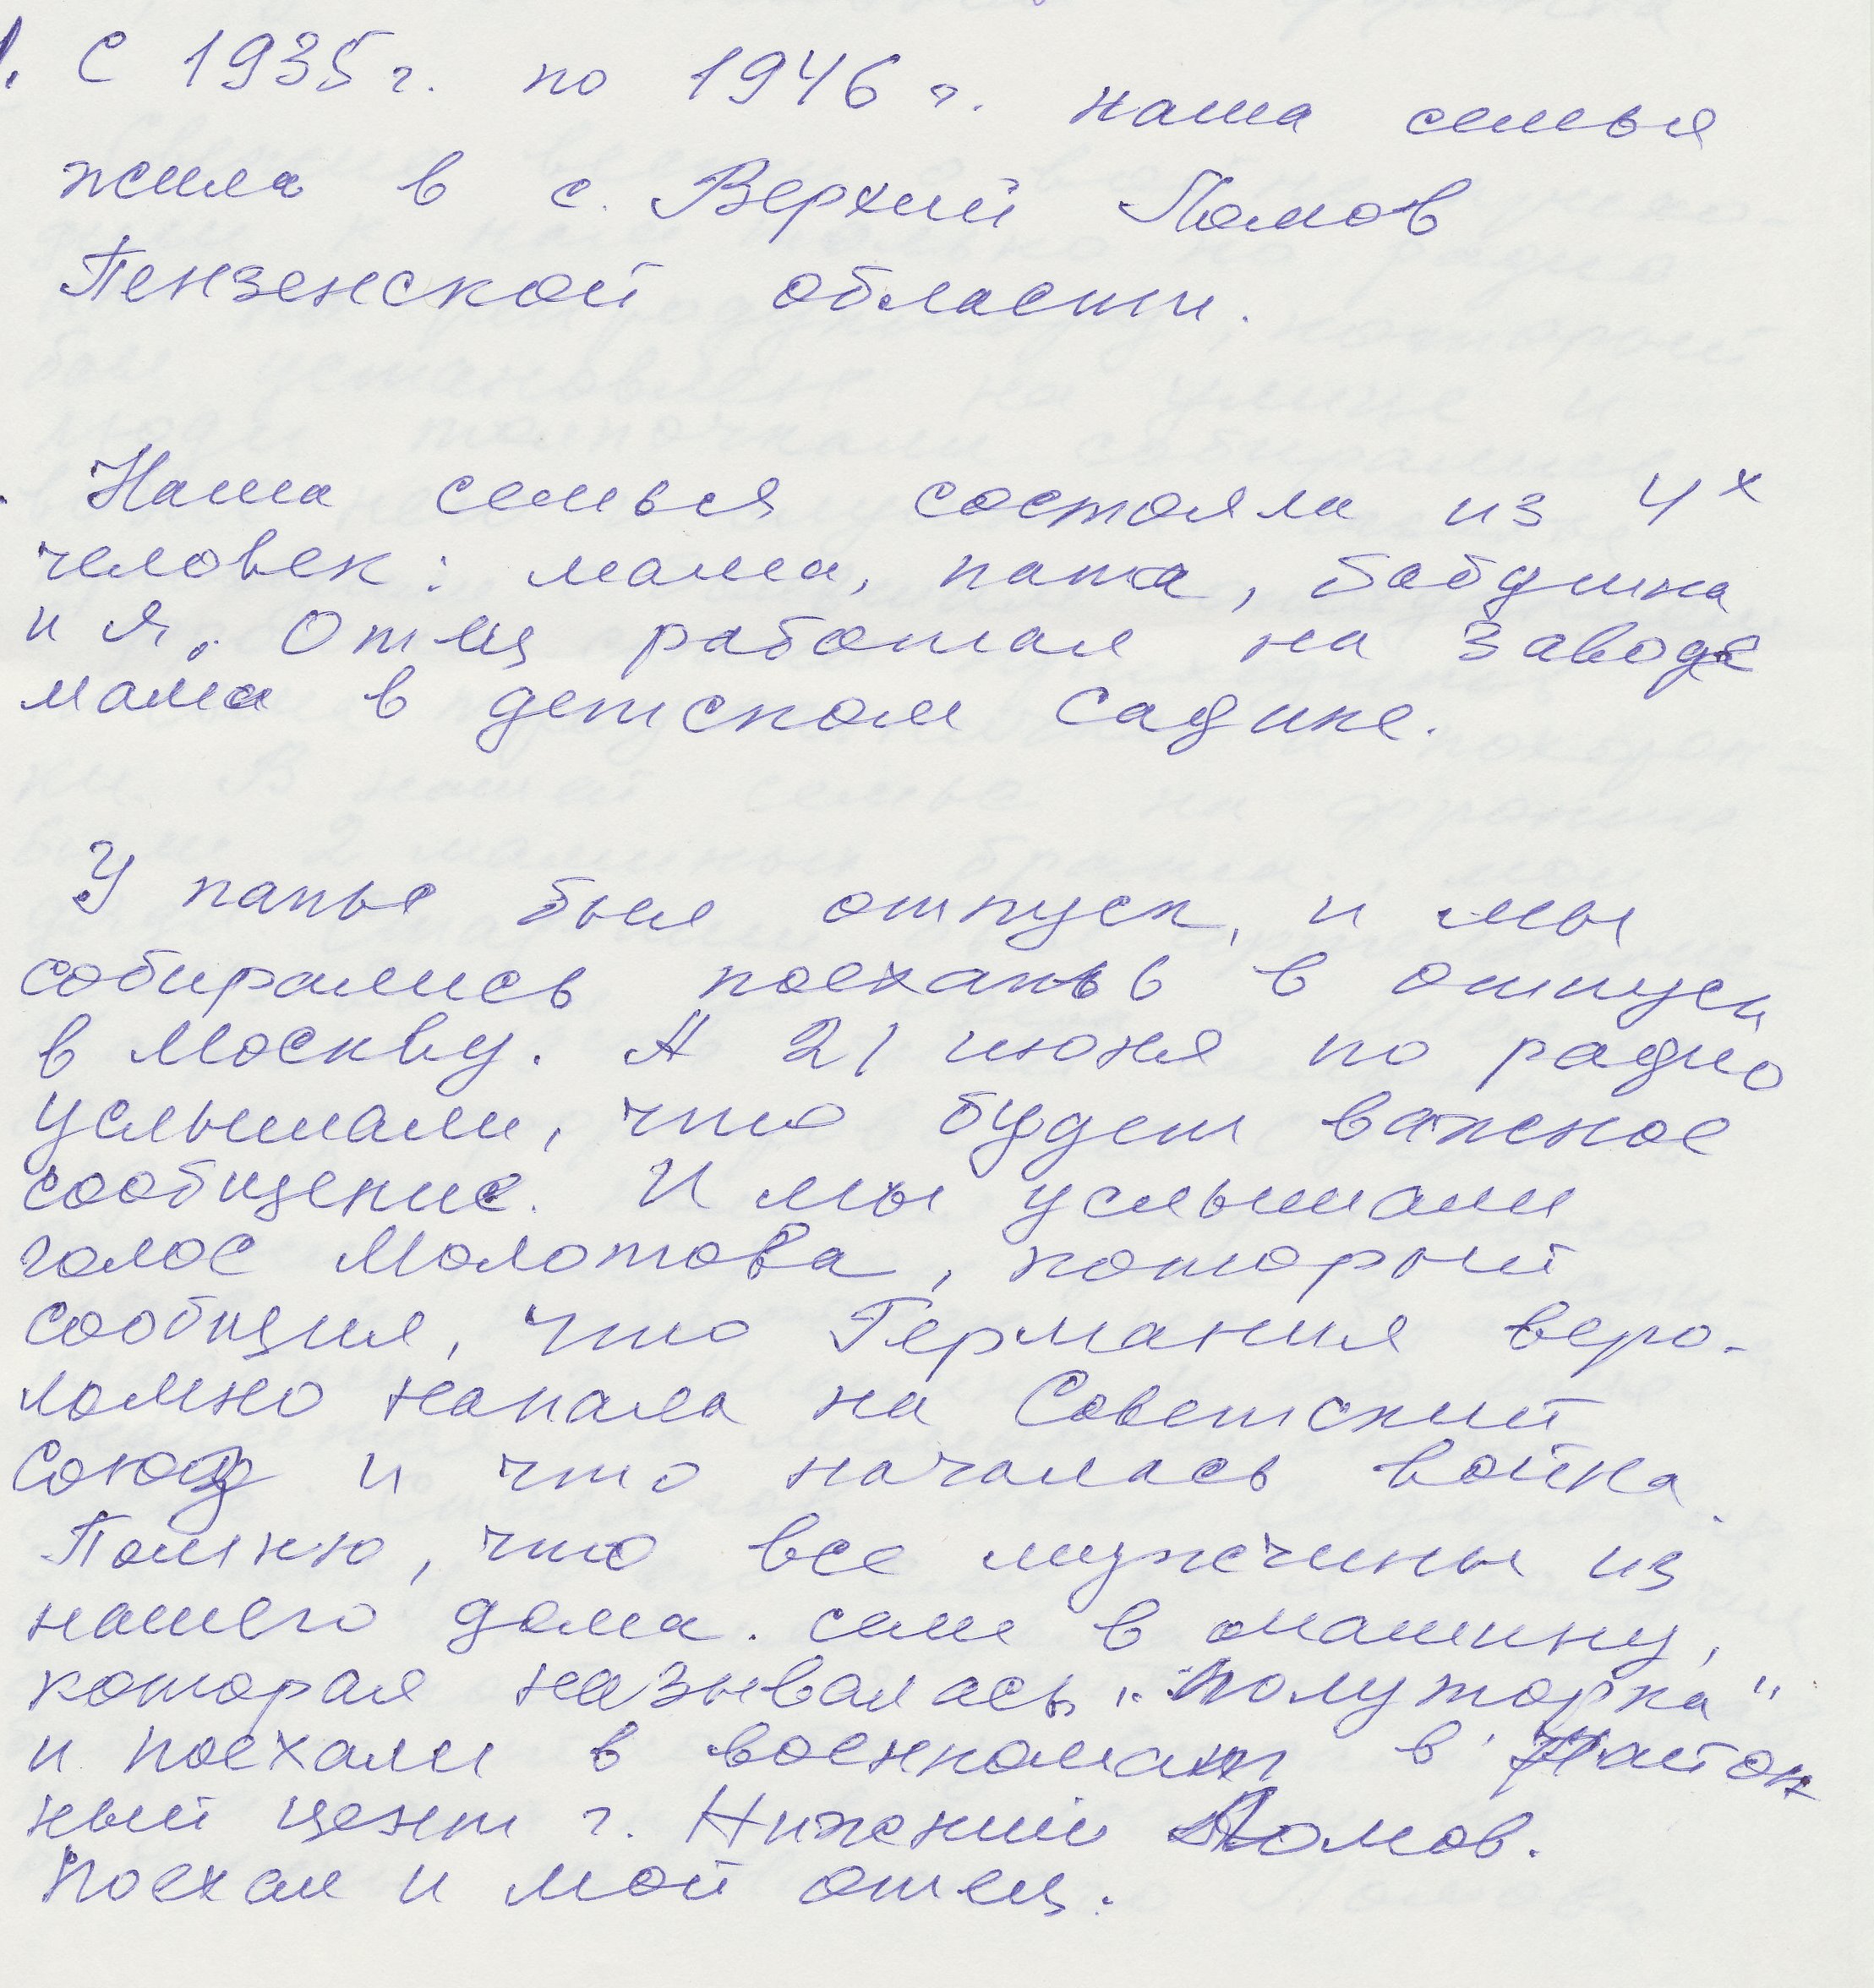 1. С 1935 г. по 1946 г. наша семья
жила в с. Верхний Ломов
Пензенской области.
Наша семья состояла из 4х
человек: мама, папа, бабушка
и я. Отец работал на заводе
мама в детском садике.
У папы был отпуск, и мы
собирались поехать в отпуск
в Москву. А 21 июня по радио
услышали, что будет важное
сообщение. И мы услышали
голос Молотова, который
сообщил, что Германия веро-
ломно напала на Советский
Союз и что началась война.
Помню, что все мужчины из
нашего дома. сели в машину,
которая называлась „полуторка"
и поехали в военкомат в район
ный цент г. Нижний Ломов.
Поехал и мой отец.